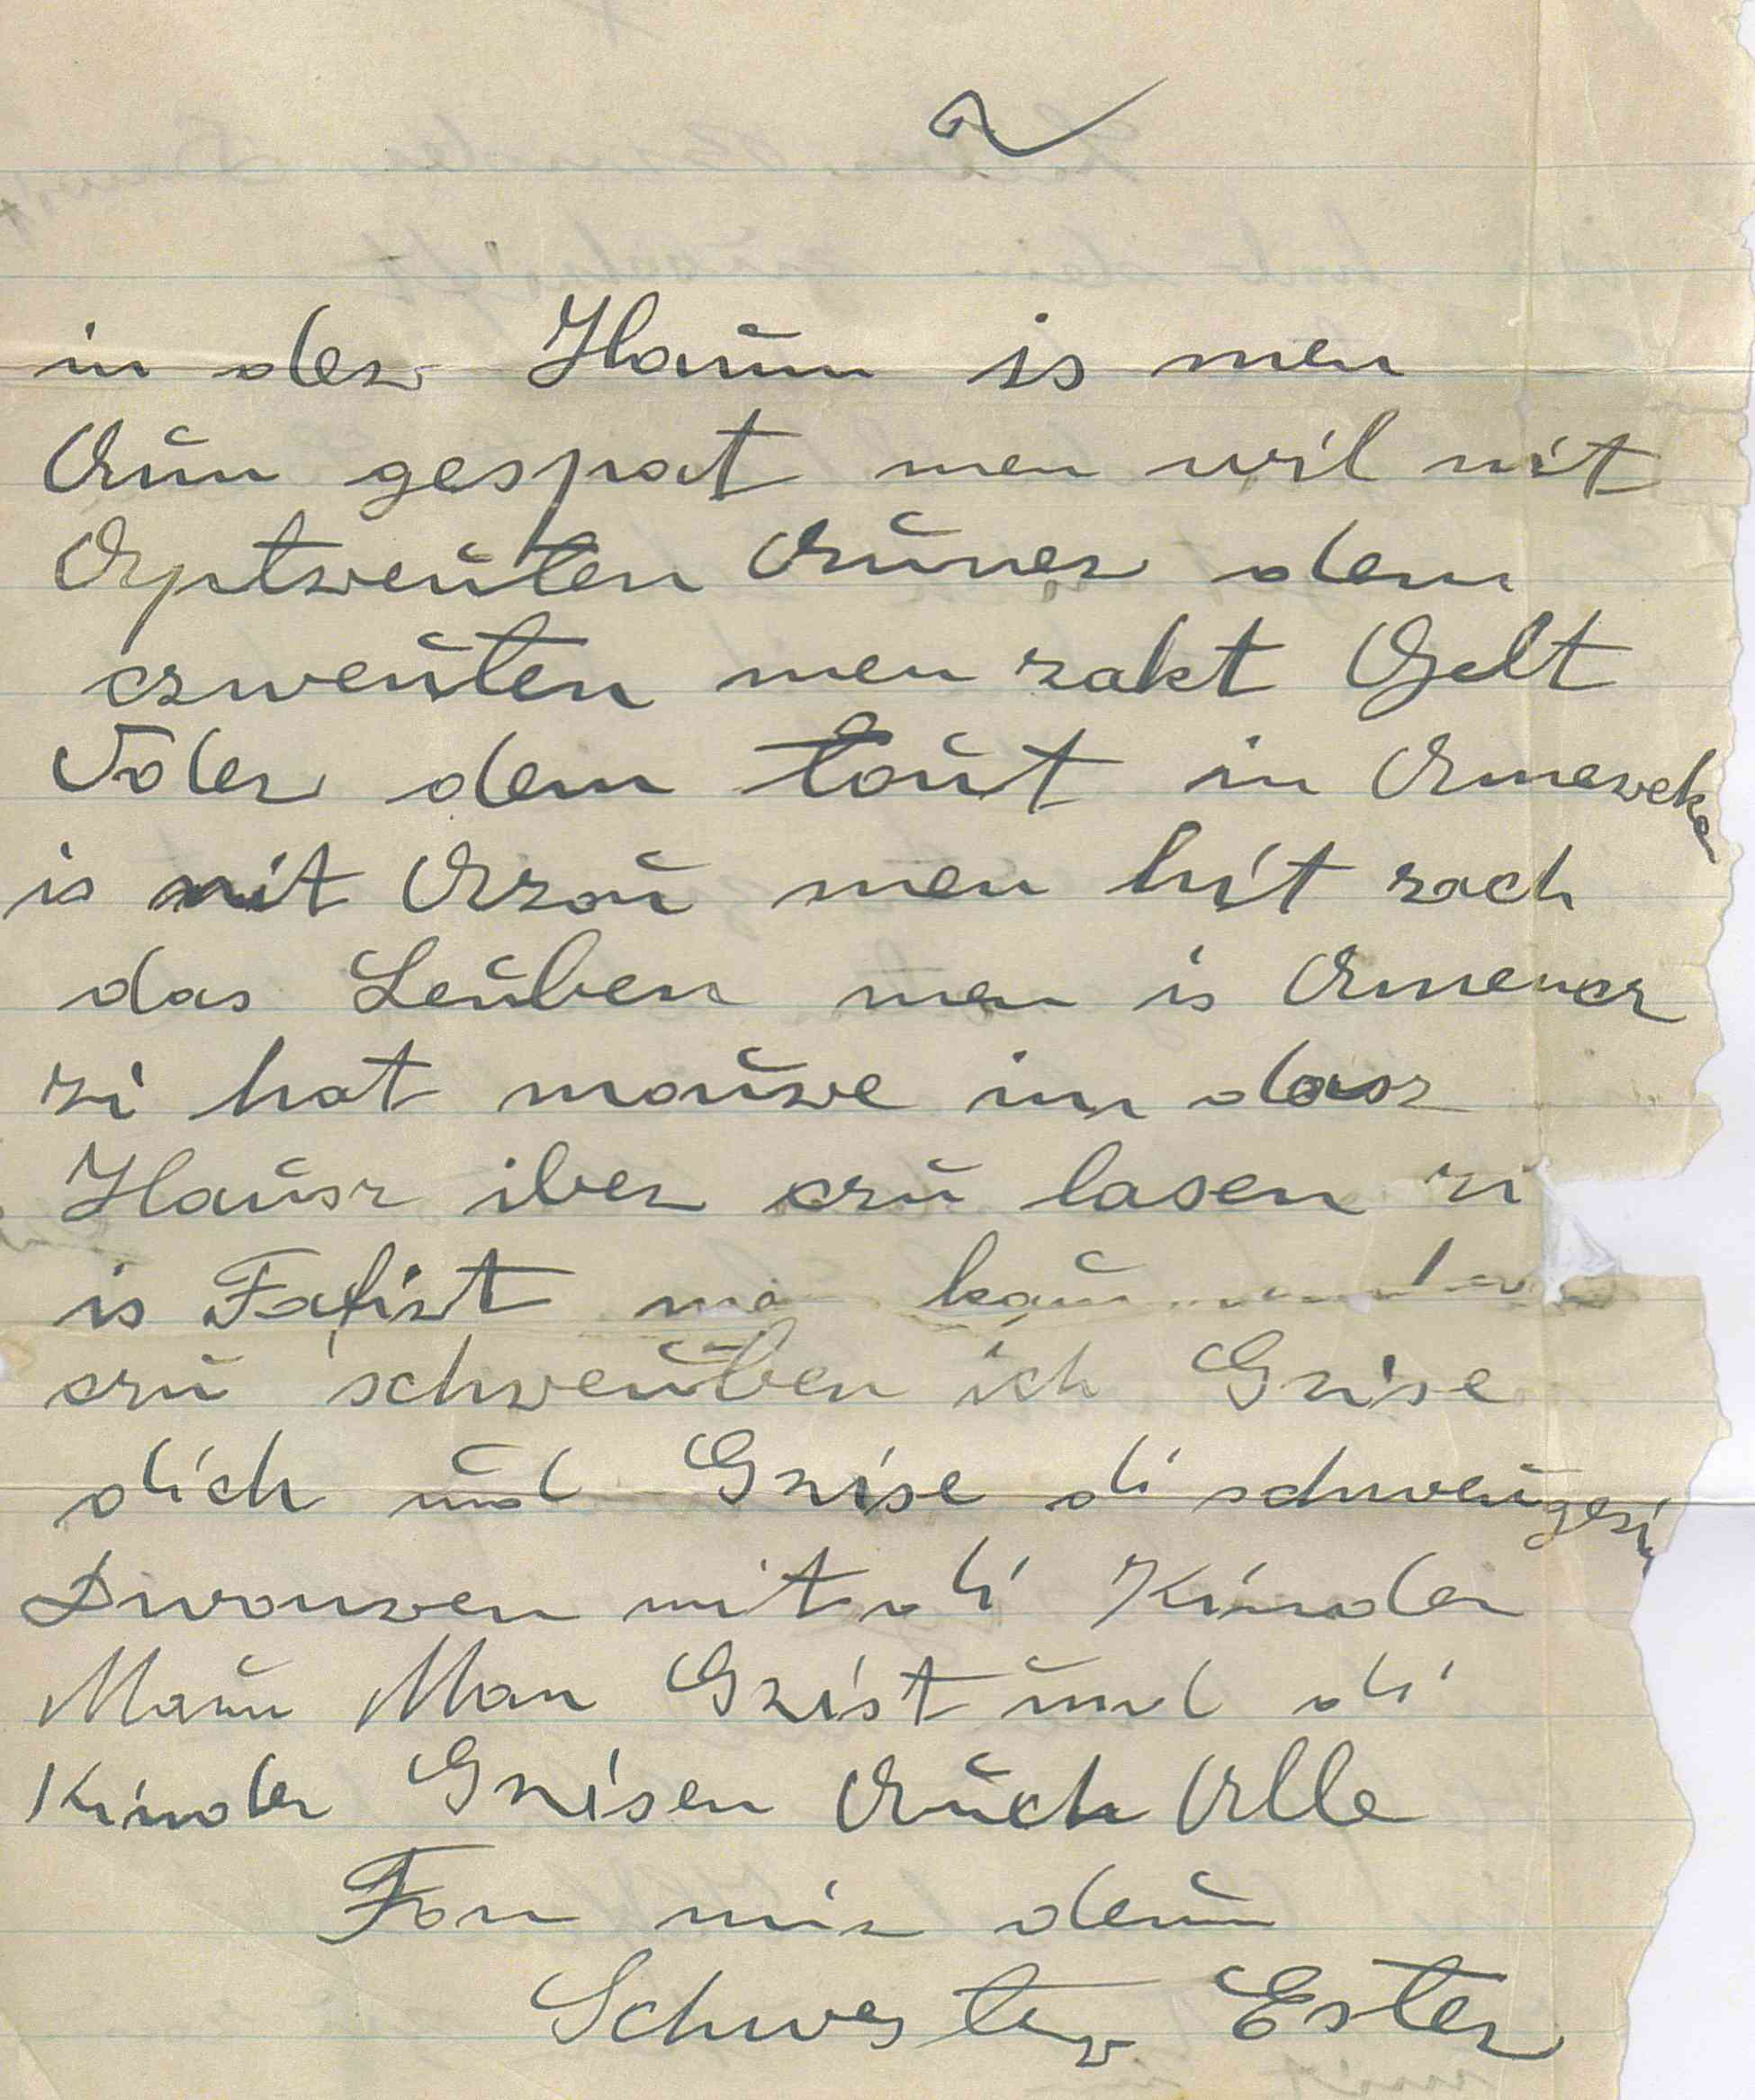 in der Haun is men
Aun gespart men wil nit
Aptreuten Auner dem
czweuten men zakt Gelt
Oder dem tout in Amereke
is nit Azou men hit zach
das Leuben men is
zi hat moure in dasz
Hausz iber czu lasen zi
is Fafirt
czu schreuben ich Grise
dich und Grise di schweugerin
Dwouren mit di Kinder
Maun Man Grist und di
Kinder Grisen Auch Alle
Fon mir deun
Schwester Ester